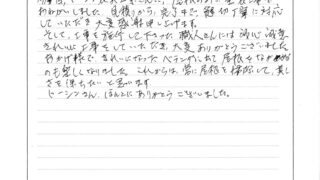 おねがいしました。見積りから完了まで親切丁寧に対応
していただき大変感謝申し上げます。
そして、工事を施行して下さった職人さんには誠心誠意
きれいに工事をしていただき大変ありがとうございました。
おかげ様で、きれいになったベランダに出て屋根を
のも楽しくなりました。これからは、常に屋根を掃除して、美し
さを保ちたいと思います。
トーシンさん、ほんとにありがとうございました。